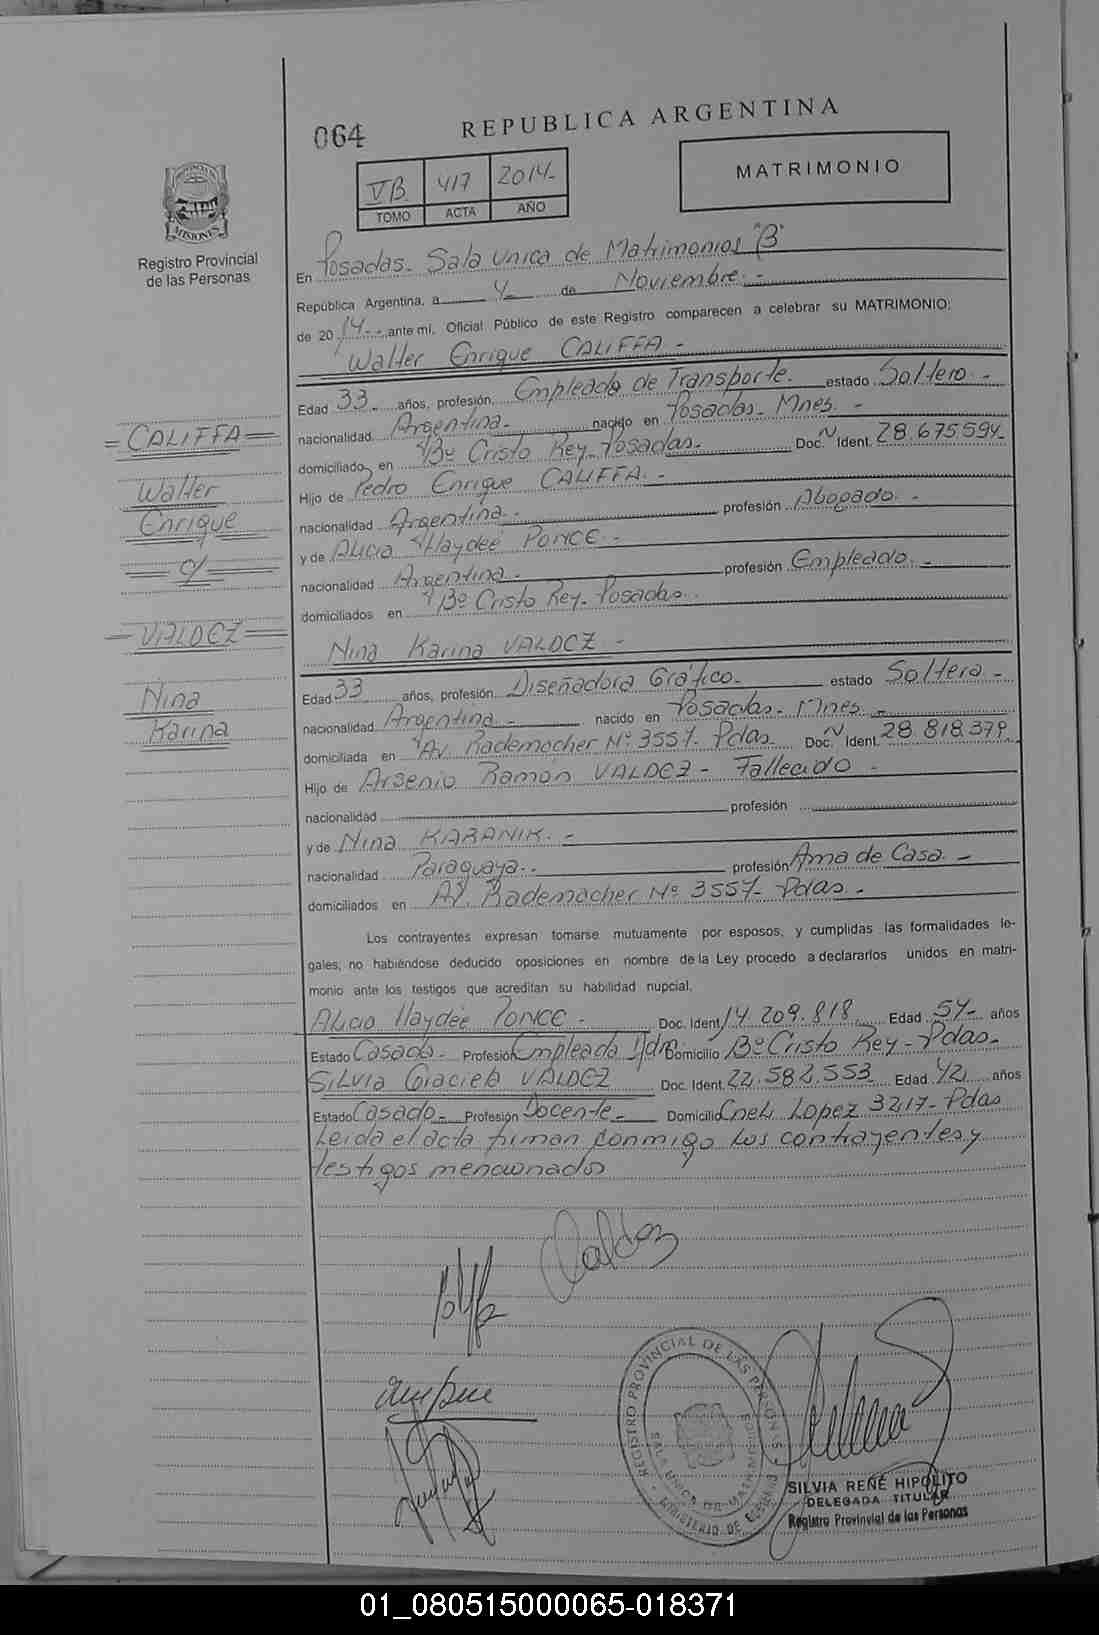 064
REPUBLICA ARGENTINA
VB 417 2014-
TOMO ACTA AÑO
MATRIMONIO
PROVINCIA
MISIONES
Registro Provincial
de las Personas
En Posadas- Sala Unica de Matrimonios "B"
República Argentina, a 4- de Noviembre.-
de 20 14.- ante mí, Oficial Público de este Registro comparecen a celebrar su MATRIMONIO:
Walter Enrique CALIFFA.-
Edad 33. años, profesión. Empleado de Transporte. estado Soltero.-
nacionalidad Argentina.- nacido en Posadas- Mnes.-
domiciliado en Bº Cristo Rey- Posadas. Doc. N Ident. 28.675.594-
Hijo de Pedro Enrique CALIFFA.-
nacionalidad Argentina.- profesión Abogado.-
y de Alicia Haydée PONCE.-
nacionalidad Argentina.- profesión Empleada.-
domiciliados en Bº Cristo Rey- Posadas.
Nina Karina VALDEZ.-
Edad 33 años, profesión. Diseñadora Gráfico.- estado Soltera.-
nacionalidad Argentina.- nacido en Posadas- Mnes.-
domiciliada en Av. Rademacher Nº 3557- Pdas. Doc. N Ident. 28.818.379.
Hijo de Arsenio Ramón VALDEZ- Fallecido.-
nacionalidad profesión
y de Nina KARANIK.-
nacionalidad Paraguaya.- profesión Ama de Casa.-
domiciliados en Av. Rademacher Nº 3557- Pdas.-
Los contrayentes expresan tomarse mutuamente por esposos, y cumplidas las formalidades le-
gales, no habiéndose deducido oposiciones en nombre de la Ley procedo a declararlos unidos en matri-
monio ante los testigos que acreditan su habilidad nupcial.
Alicia Haydée PONCE.- Doc. Ident. 14.209.818 Edad 54- años
Estado Casada- Profesión Empleada Domicilio Bº Cristo Rey- Pdas.
Silvia Graciela VALDEZ Doc. Ident. 22.582.553 Edad 42 años
Estado Casado- Profesión Docente- Domicilio Cnel. Lopez 3217- Pdas
Leída el acta firman conmigo los contrayentes y
testigos mencionados
=CALIFFA=
Walter
Enrique
c/
=VALDEZ=
Nina
Karina
Valdez
REGISTRO PROVINCIAL DE LAS PERSONAS
SALA UNICA DE MATRIMONIOS
MINISTERIO DE GOBIERNO
SILVIA RENÉ HIPOLITO
DELEGADA TITULAR
Registro Provincial de las Personas
01_080515000065-018371